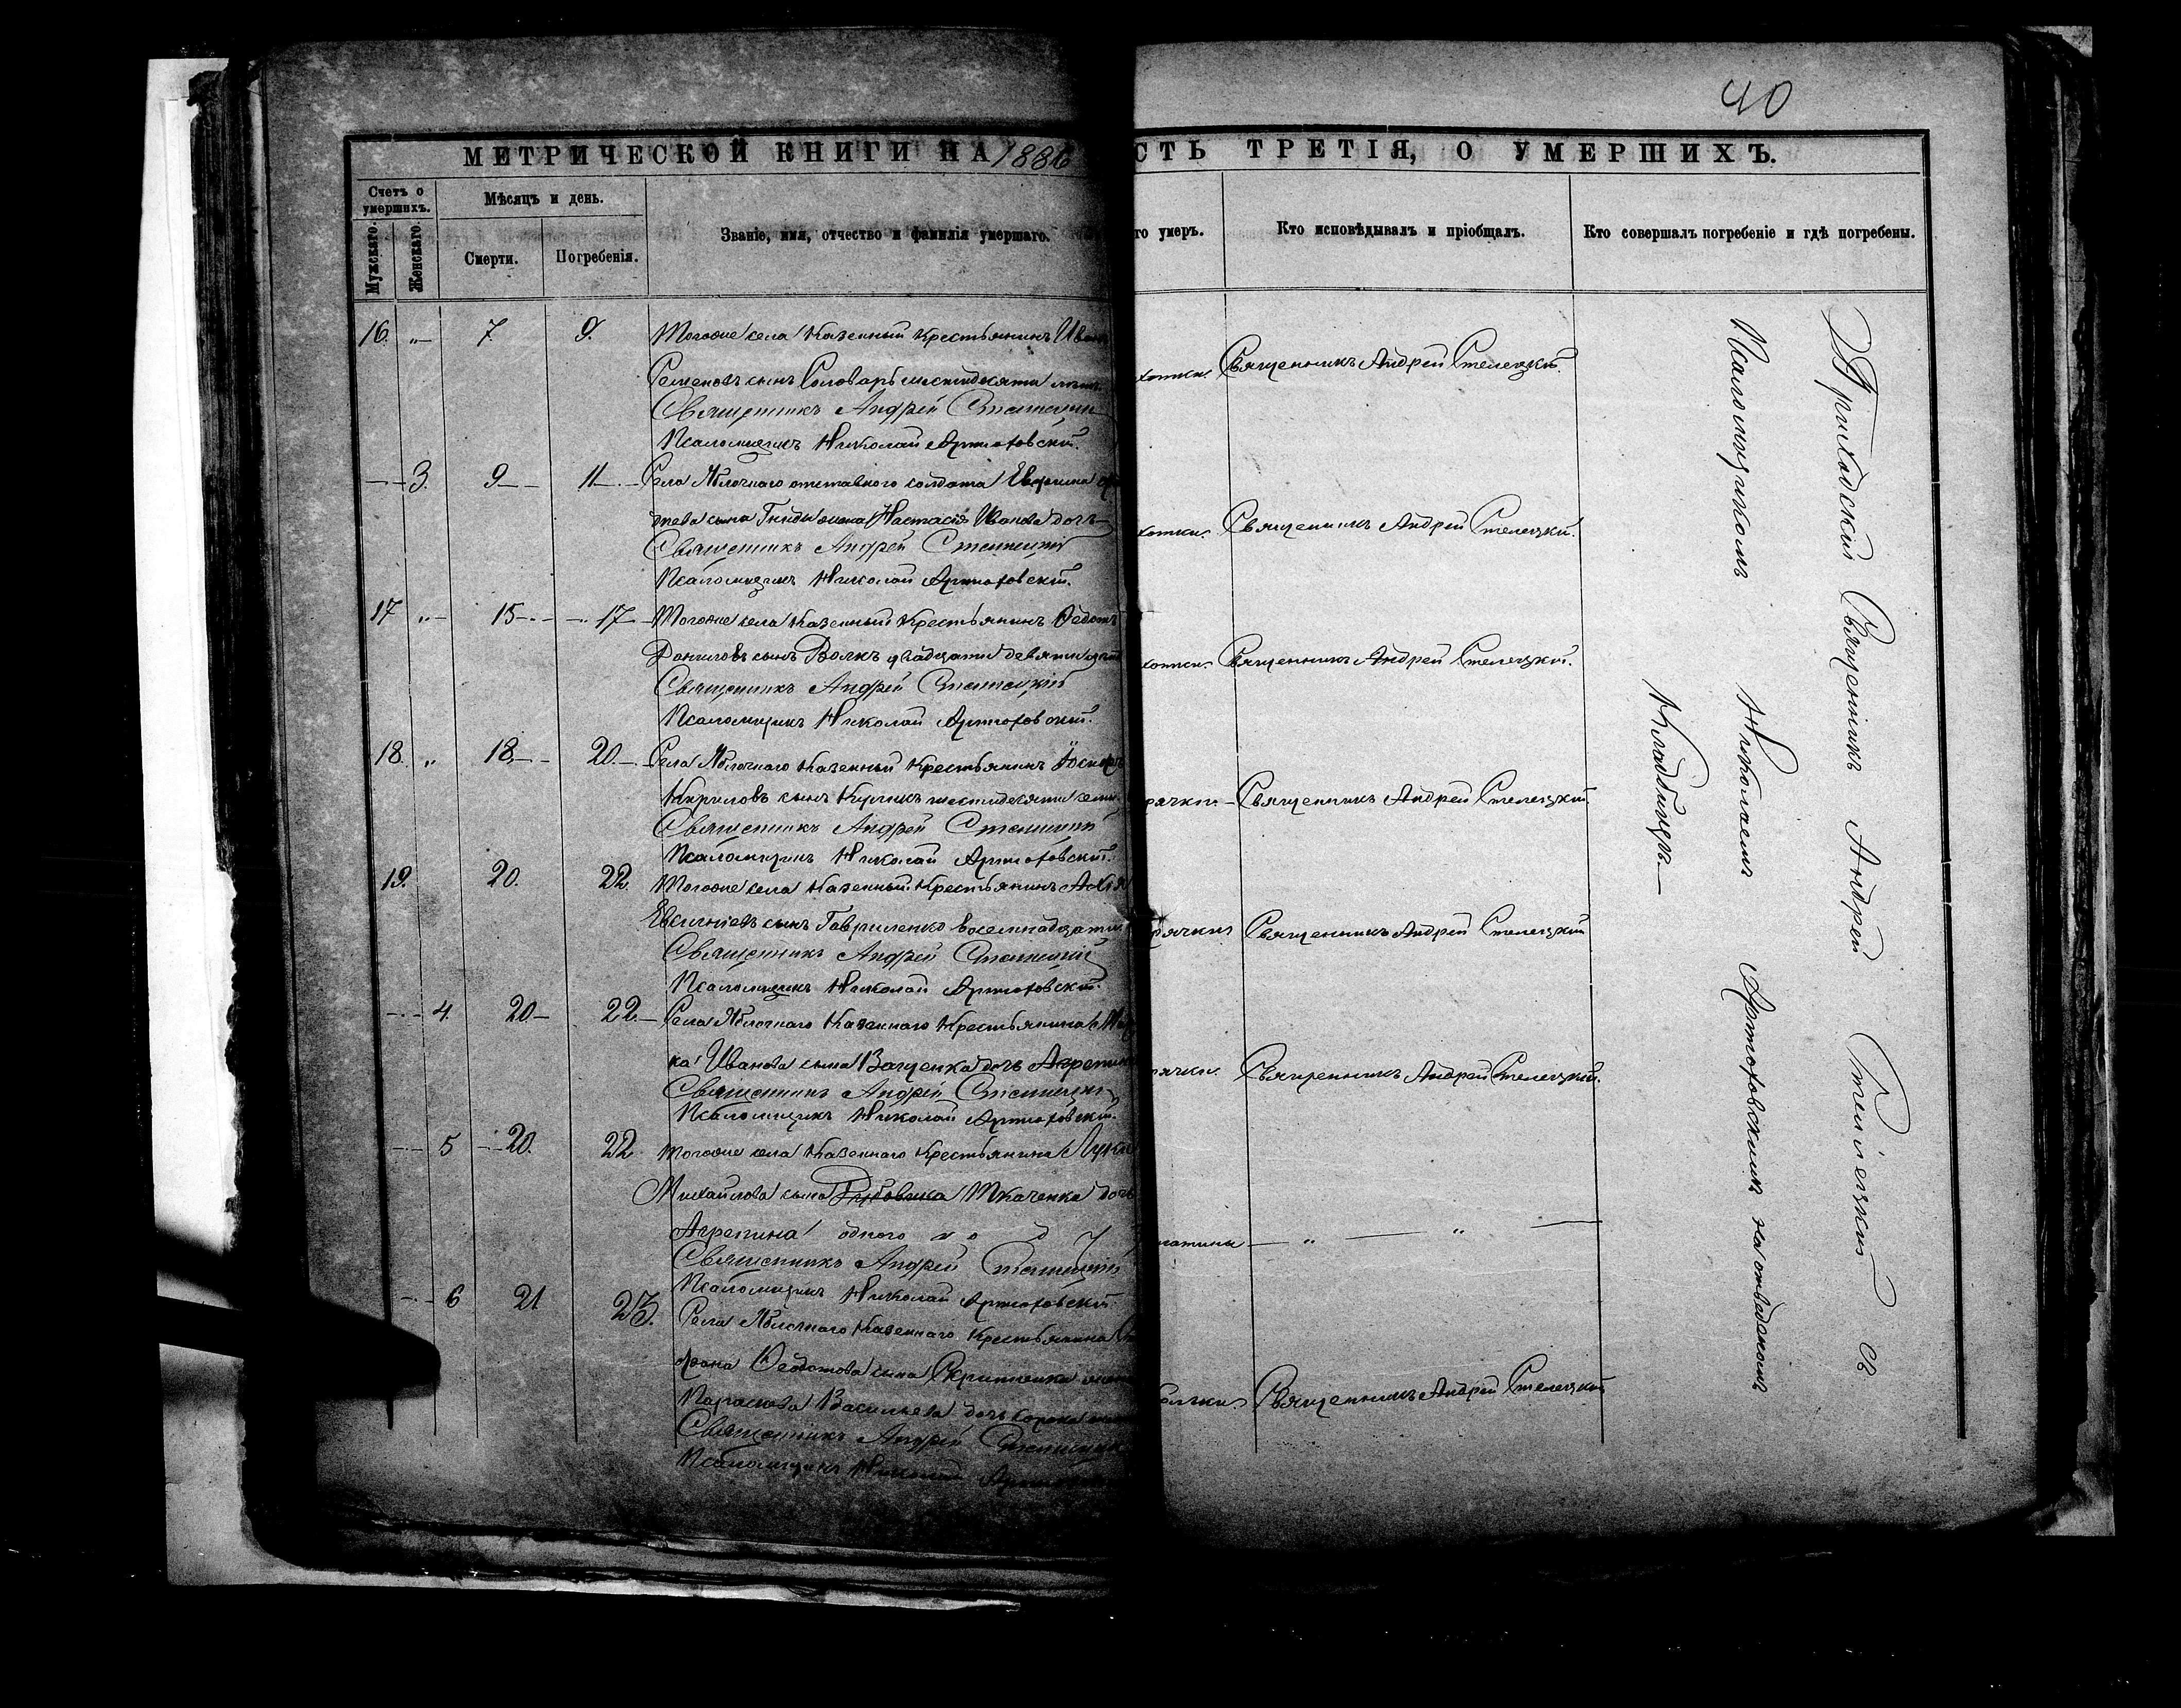 40
МЕТРИЧЕСКОЙ КНИГИ НА 1886
СТЬ ТРЕТІЯ, О УМЕРШИХЪ.
Счетъ о умершихъ.
Мужскаго.
Женскаго.
Мѣсяцъ и день.
Смерти.
Погребенія.
Званіе, имя, отчество и фамилія умершаго.
го умеръ.
Кто исповѣдывалъ и пріобщалъ.
Кто совершалъ погребеніе и гдѣ погребены.
16. „ 7. 9. Тогоже села Казенный Крестьянинъ Иван
Семеновъ сынъ Соловарь шестидесяти
Священникъ Андрей Стелецкій
Псаломщикъ Николай Артюховскій.
хотки. Священникъ Андрей Стелецкій.
3. 9 11 Села Яблочнаго отставного солдата
сына жена Настасія Иванова дочь
Священникъ Андрей Стелецкій
Псаломщикъ Николай Артюховскій.
хотки. Священникъ Андрей Стелецкій.
17 „ 15 17 Тогоже села Казенный Крестьянинъ Федотъ
Даниловъ сынъ Волкъ двадцати девяти
Священникъ Андрей Стелецкій
Псаломщикъ Николай Артюховскій.
хотки. Священникъ Андрей Стелецкій.
18. „ 18 20 Села Яблочнаго Казенный Крестьянинъ
Кириловъ сынъ Куликъ шестидесяти семи
Священникъ Андрей Стелецкій
Псаломщикъ Николай Артюховскій.
рячки Священникъ Андрей Стелецкій.
19. 20. 22. Тогоже села Казенный Крестьянинъ
Евсигніевъ сынъ Гавриленко восемнадцати
Священникъ Андрей Стелецкій
Псаломщикъ Николай Артюховскій.
рячки Священникъ Андрей Стелецкій
4. 20 22. Села Яблочнаго Казеннаго Крестьянина
ка Иванова сына Ващенка дочь Агрепина
Священникъ Андрей Стелецкій
Псаломщикъ Николай Артюховскій.
рячки. Священникъ Андрей Стелецкій.
5 20. 22. Тогоже села Казеннаго Крестьянина Луки
Михайлова сына Ткаченка дочь
Агрепина одного
Священникъ Андрей Стелецкій
Псаломщикъ Николай Артюховскій
„ „
6 21 23. Села Яблочнаго Казеннаго Крестьянина
Федотова сына жена
Параскева Васильева дочь сорока
Священникъ Андрей Стелецкій
Псаломщикъ Николай
Священникъ Андрей Стелецкій
Приходскій Священникъ Андрей Стелецкій съ
Псаломщикомъ Николаемъ Артюховскимъ на отведеномъ
Кладбищѣ.